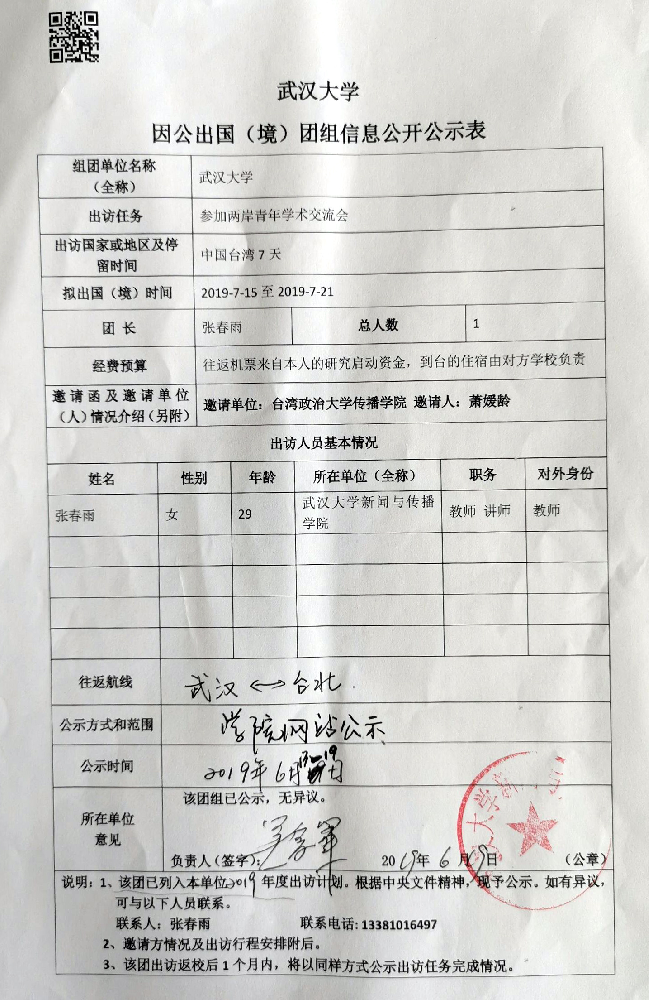 武汉大学
因公出国（境）团组信息公开公示表
组团单位名称（全称） 武汉大学
出访任务 参加两岸青年学术交流会
出访国家或地区及停留时间 中国台湾 7 天
拟出国（境）时间 2019-7-15 至 2019-7-21
团 长 张春雨 总人数 1
经费预算 往返机票来自本人的研究启动资金，到台的住宿由对方学校负责
邀请函及邀请单位（人）情况介绍（另附） 邀请单位：台湾政治大学传播学院 邀请人：萧媛龄
出访人员基本情况
姓名 性别 年龄 所在单位（全称） 职务 对外身份
张春雨 女 29 武汉大学新闻与传播学院 教师 讲师 教师
往返航线 武汉 ↔ 台北
公示方式和范围 学院网站公示
公示时间 2019年6月 19日
所在单位意见 该团组已公示，无异议。
负责人（签字）： 2019年 6 月19日 （公章）
说明：1、该团已列入本单位2019年度出访计划。根据中央文件精神，现予公示。如有异议，
可与以下人员联系。
联系人：张春雨 联系电话: 13381016497
2、邀请方情况及出访行程安排附后。
3、该团出访返校后 1 个月内，将以同样方式公示出访任务完成情况。